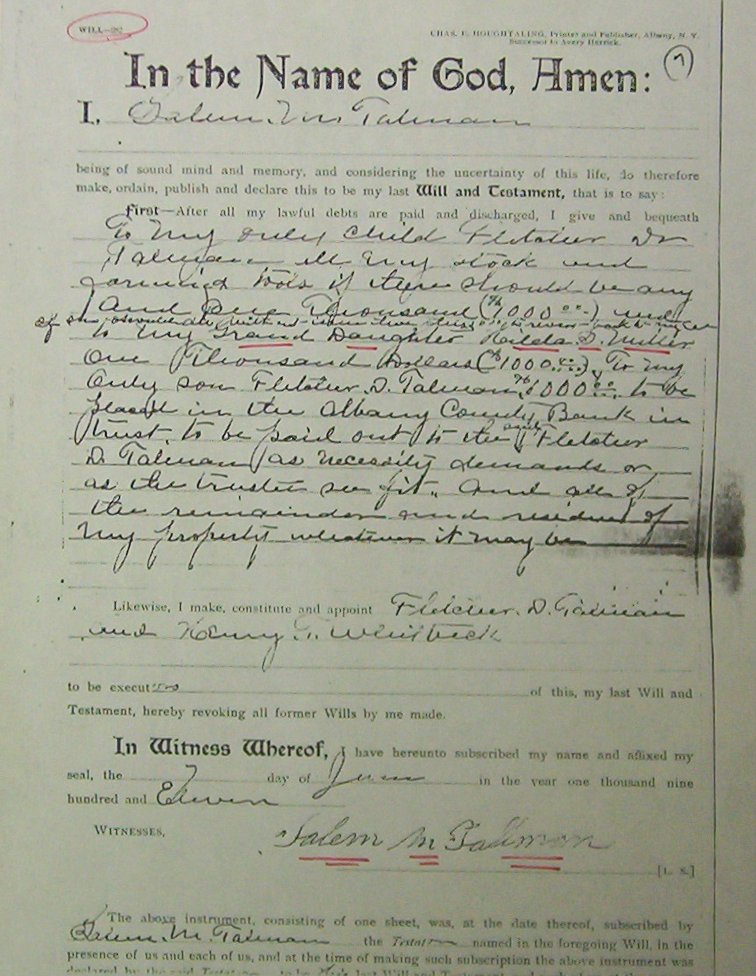 WILL—
CHAS. E. HOUGHTALING, Printer and Publisher, Albany, N. Y.
Successor to Avery Herrick.
7
In the Name of God, Amen:
I, Salem. M. Talman
being of sound mind and memory, and considering the uncertainty of this life, do therefore
make, ordain, publish and declare this to be my last Will and Testament, that is to say:
First—After all my lawful debts are paid and discharged, I give and bequeath
To my only child Fletcher D.
Talman all my stock and
farming tools if there should be any
And One Thousand ($1000 00) and
of
to my Grand Daughter Hulda F. Miller
One Thousand Dollars ($1000.00) To my
Only son Fletcher. D. Talman $1000 00 to be
placed in the Albany County Bank in
trust. to be paid out to the said Fletcher
D. Talman as necessity demands or
as the trustee see fit. And all of
the remainder and residue of
my property whatever it may be
Likewise, I make, constitute and appoint Fletcher. D. Talman
and Henry T. Whitbeck
to be executors of this, my last Will and
Testament, hereby revoking all former Wills by me made.
In Witness Whereof, I have hereunto subscribed my name and affixed my
seal, the 7 day of June in the year one thousand nine
hundred and Eleven
WITNESSES,
Salem M Tallman
[L. S.]
The above instrument, consisting of one sheet, was, at the date thereof, subscribed by
Salem. M. Talman the Testator named in the foregoing Will, in the
presence of us and each of us, and at the time of making such subscription the above instrument was
declared by the said Testator to be his last Will and Testament